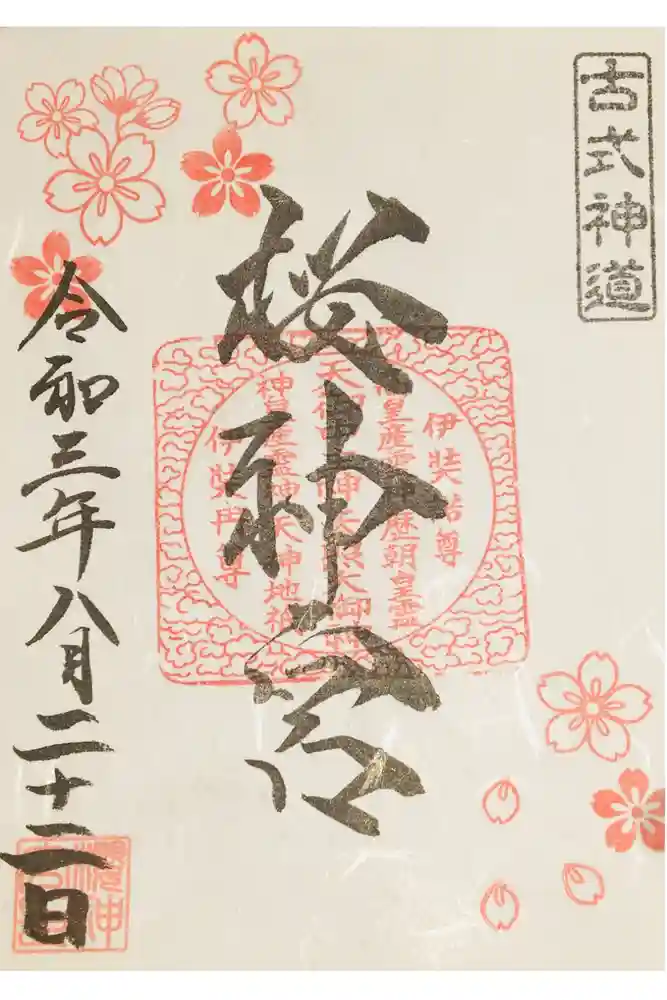 古式神道
桜神宮
伊奘諾尊
歴朝皇霊
神皇産霊神 天神地祇
伊奘冉尊
令和三年八月二十二日